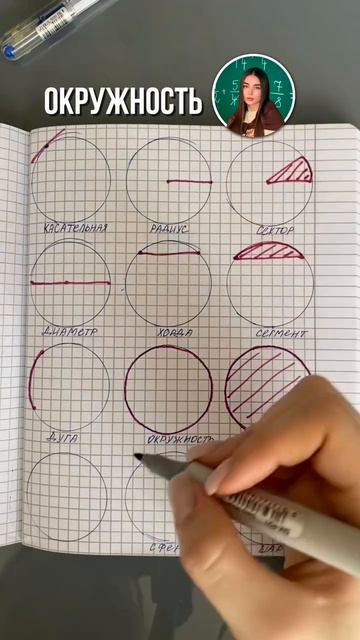 ОКРУЖНОСТЬ
КАСАТЕЛЬНАЯ
РАДИУС
СЕКТОР
ДИАМЕТР
ХОРДА
СЕГМЕНТ
ДУГА
ОКРУЖНОСТЬ
ШАР